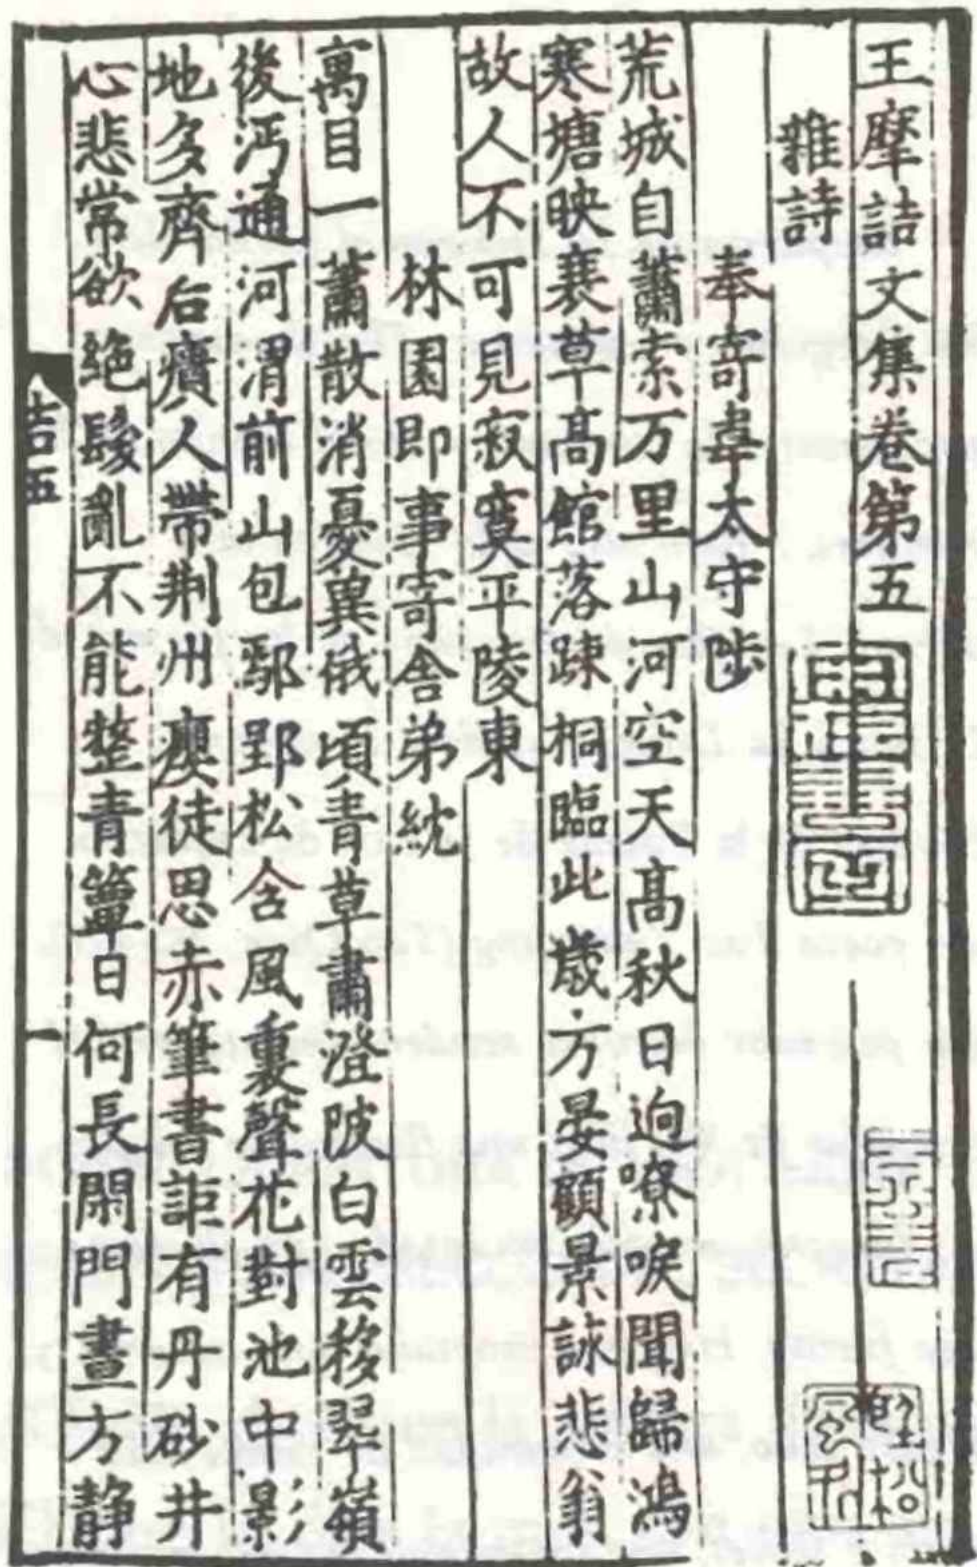 王摩詰文集卷第五
雜詩
奉寄韋太守陟
荒城自蕭索万里山河空天髙秋日逈嘹唳聞歸鴻
寒塘映衰草髙館落踈桐臨此歲方晏顧景詠悲翁
故人不可見寂寞平陵東
林園即事寄舎弟紞
寓目一蕭散消憂兾俄頃青草肅澄陂白雲移翠嶺
後沔通河渭前山包鄢郢松含風裏聲花對池中影
地多齊后瘧人帶荆州癭徒思赤筆書詎有丹砂井
心悲常欲絶髮亂不能整青簟日何長閑門晝方静
詰五
一